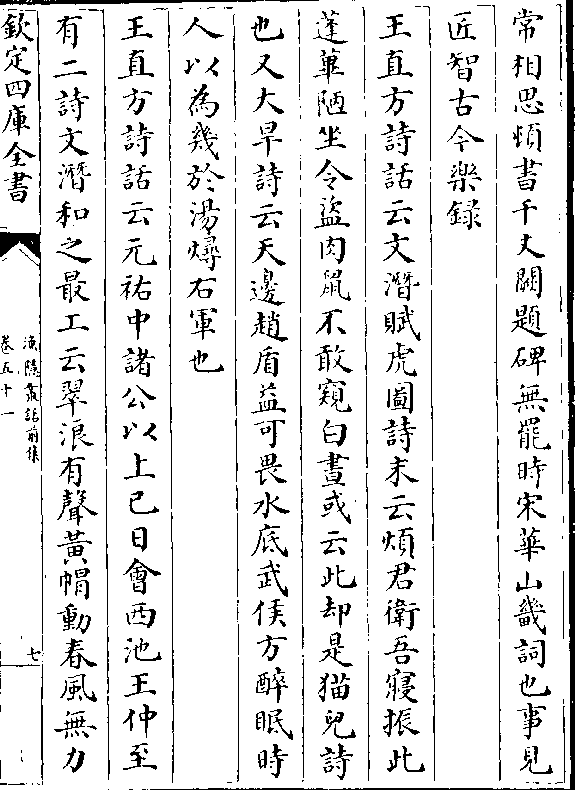 常相思煩書千丈闕題碑無罷時宋華山畿詞也事見
匠智古今樂録
王直方詩話云文潛賦虎圖詩末云煩君衛吾寢振此
蓬蓽陋坐令盜肉鼠不敢窺白晝或云此却是猫兒詩
也又大旱詩云天邊趙盾益可畏水底武侯方醉眠時
人以為幾於湯燖右軍也
王直方詩話云元祐中諸公以上巳日會西池王仲至
有二詩文潛和之最工云翠浪有聲黃帽動春風無力
欽定四庫全書
漁隱叢話前集
卷五十一
七